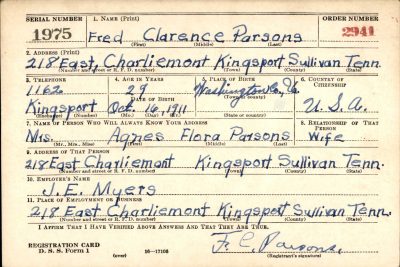 SERIAL NUMBER 1. NAME (Print) ORDER NUMBER
1975 Fred Clarence Parsons 2941
(First) (Middle) (Last)
2. ADDRESS (Print)
218 East, Charliemont Kingsport Sullivan Tenn.
(Number and street or R. F. D. number) (Town) (County) (State)
3. TELEPHONE 4. AGE IN YEARS 5. PLACE OF BIRTH 6. COUNTRY OF CITIZENSHIP
1162 29 Washington Co, Va.
DATE OF BIRTH (Town) (County)
Kingsport Oct. 16, 1911 U.S.A.
(Exchange) (Mo.) (Day) (Yr.) (State or country)
7. NAME OF PERSON WHO WILL ALWAYS KNOW YOUR ADDRESS 8. RELATIONSHIP OF THAT PERSON
Mrs. Agnes Flora Parsons Wife
(Mr., Mrs., Miss) (First) (Middle) (Last)
9. ADDRESS OF THAT PERSON
218 East Charliemont Kingsport Sullivan Tenn.
(Number and street or R. F. D. number) (Town) (County) (State)
10. EMPLOYER'S NAME
J. E. Myers
11. PLACE OF EMPLOYMENT OR BUSINESS
218 East Charliemont Kingsport Sullivan Tenn.
(Number and street or R. F. D. number) (Town) (County) (State)
I AFFIRM THAT I HAVE VERIFIED ABOVE ANSWERS AND THAT THEY ARE TRUE.
REGISTRATION CARD
D. S. S. Form 1 (over) 16—17105 F. C. Parsons
(Registrant's signature)